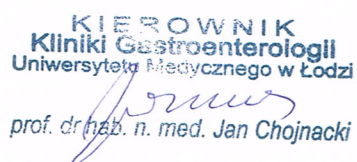 KIEROWNIK
Kliniki Gastroenterologii
Uniwersytetu Medycznego w Łodzi
prof. dr hab. n. med. Jan Chojnacki